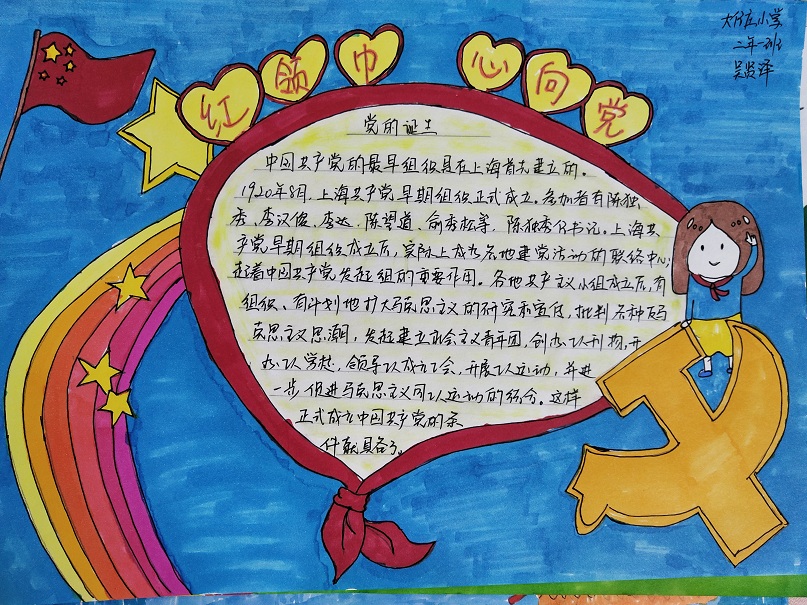 红领巾 心向党
大仔庄小学
二年一班
吴贤泽
党的诞生
中国共产党的最早组织是在上海首先建立的。
1920年8月,上海共产党早期组织正式成立。参加者有陈独
秀、李汉俊、李达、陈望道、俞秀松等,陈独秀任书记。上海共
产党早期组织成立后,实际上成为各地建党活动的联络中心,
起着中国共产党发起组的重要作用。各地共产主义小组成立后,有
组织、有计划地扩大马克思主义的研究和宣传,批判各种反马
克思主义思潮,发起建立社会主义青年团,创办工人刊物,开
办工人学校,领导工人成立工会,开展工人运动,并进
一步促进马克思主义同工人运动的结合。这样
正式成立中国共产党的条
件就具备了。